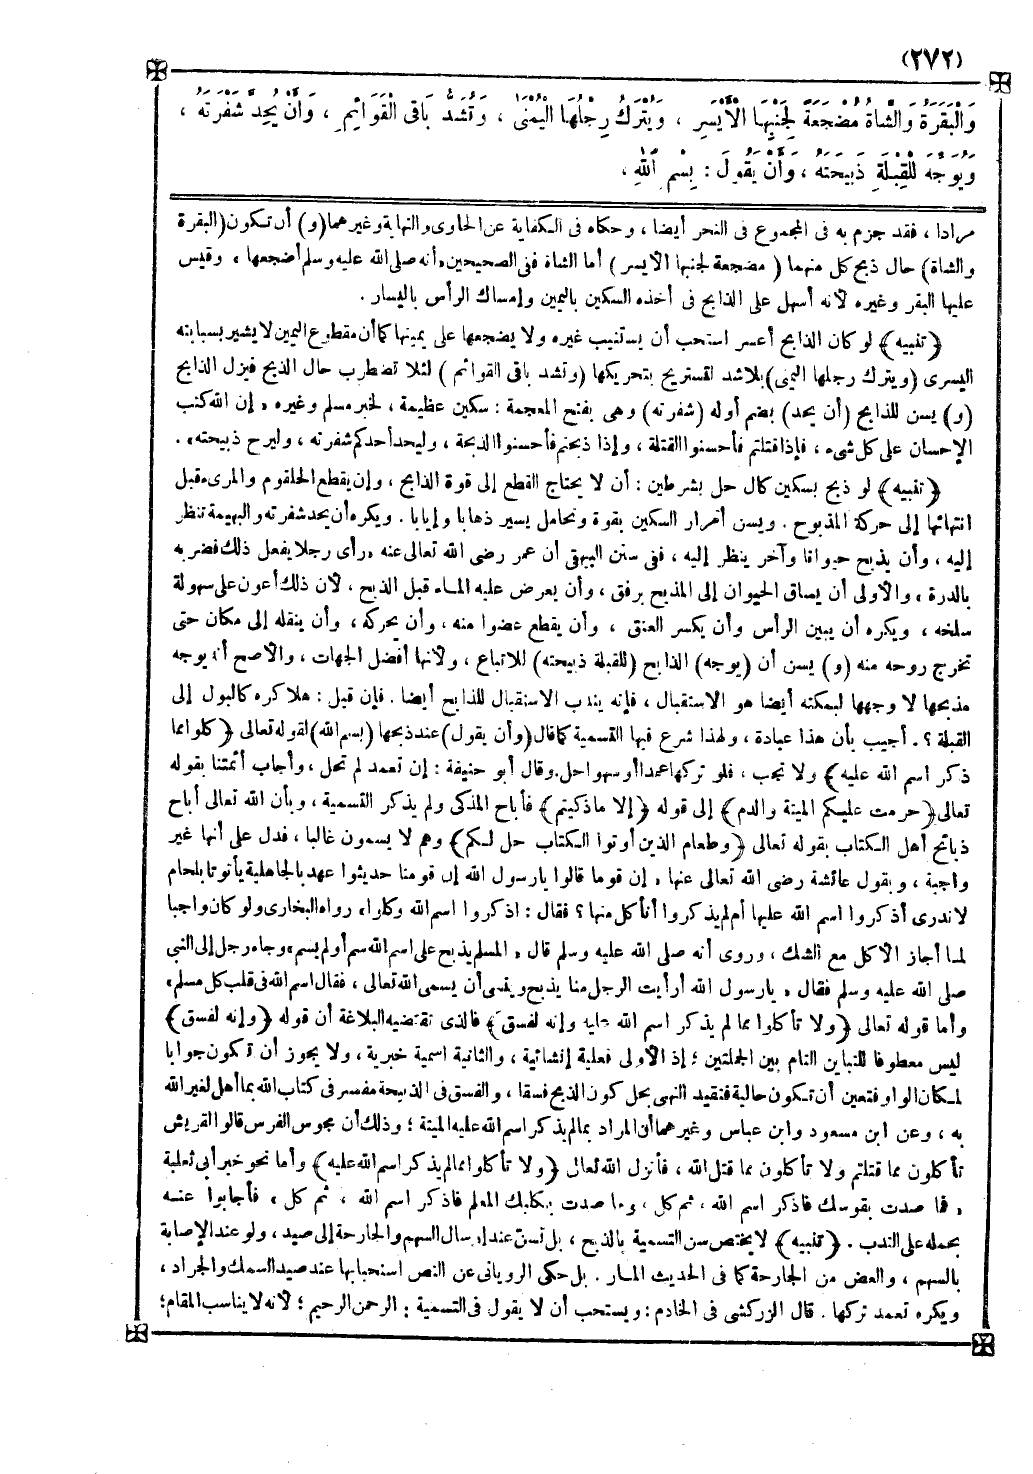 (٢٧٢)
وَالْبَقَرَةُ وَالشَّاةُ مُضْجَعَةً لِجَنْبِهَا الْأَيْسَرِ ، وَيُتْرَكُ رِجْلُهَا الْيُمْنَى ، وَتُشَدُّ بَاقِى الْقَوَائِمِ ، وَأَنْ يُحِدَّ شَفْرَتَهُ ،
وَيُوَجِّهَ لِلْقِبْلَةِ ذَبِيحَتَهُ ، وَأَنْ يَقُولَ : بِسْمِ اللهِ ،
مرادا ، فقد جزم به فى المجموع فى النحر أيضا ، وحكاه فى الكفاية عن الحاوى والنهاية وغيرهما (و) أن تكون (البقرة
والشاة) حال ذبح كل منهما ( مضجعة لجنبها الأيسر ) أما الشاة ففى الصحيحين « أنه صلى الله عليه وسلم أضجعها » وقيس
عليها البقر وغيره لأنه أسهل على الذابح فى أخذه السكين باليمين وإمساك الرأس باليسار .
﴿ تنبيه ﴾ لو كان الذابح أعسر استحب أن يستنيب غيره ولا يضجعها على يمينها كما أن مقطوع اليمين لا يشير بسبابته
اليسرى (ويترك رجلها اليمنى) بلا شد لتستريح بتحريكها (وتشد باقى القوائم ) لئلا تضطرب حال الذبح فيزل الذابح
(و) يسن للذابح (أن يحد) بضم أوله (شفرته) وهى بفتح المعجمة : سكين عظيمة ، لخبر مسلم وغيره « إن الله كتب
الإحسان على كل شىء ، فإذا قتلتم فأحسنوا القتلة ، وإذا ذبحتم فأحسنوا الذبحة ، وليحد أحدكم شفرته ، وليرح ذبيحته » .
﴿ تنبيه ﴾ لو ذبح بسكين كال حل بشرطين : أن لا يحتاج القطع إلى قوة الذابح ، وإن يقطع الحلقوم والمرىء قبل
انتهائها إلى حركة المذبوح . ويسن أمرار السكين بقوة وتحامل يسير ذهابا وإيابا . ويكره أن يحد شفرته والبهيمة تنظر
إليه ، وأن يذبح حيوانا وآخر ينظر إليه ، ففى سنن البيهقى أن عمر رضى الله تعالى عنه « رأى رجلا يفعل ذلك فضربه
بالدرة » والأولى أن يساق الحيوان إلى المذبح برفق ، وأن يعرض عليه الماء قبل الذبح ، لأن ذلك أعون على سهولة
سلخه ، ويكره أن يبين الرأس وأن يكسر العنق ، وأن يقطع عضوا منه ، وأن يحركه ، وأن ينقله إلى مكان حتى
تخرج روحه منه (و) يسن أن (يوجه) الذابح (للقبلة ذبيحته) للاتباع ، ولأنها أفضل الجهات ، والأصح أنه يوجه
مذبحها لا وجهها ليمكنه أيضا هو الاستقبال ، فإنه يندب الاستقبال للذابح أيضا . فإن قيل : هلا كره كالبول إلى
القبلة ؟ . أجيب بأن هذا عبادة ، ولهذا شرع فيها التسمية كما قال (وأن يقول) عند ذبحها (بسم الله) لقوله تعالى ﴿ كلوا مما
ذكر اسم الله عليه ﴾ ولا تجب ، فلو تركها عمدا أو سهوا حل . وقال أبو حنيفة : إن تعمد لم تحل ، وأجاب أئمتنا بقوله
تعالى ﴿ حرمت عليكم الميتة والدم ﴾ إلى قوله ﴿ إلا ما ذكيتم ﴾ فأباح المذكى ولم يذكر التسمية ، وبأن الله تعالى أباح
ذبائح أهل الكتاب بقوله تعالى ﴿ وطعام الذين أوتوا الكتاب حل لكم ﴾ وهم لا يسمون غالبا ، فدل على أنها غير
واجبة ، وبقول عائشة رضى الله تعالى عنها « إن قوما قالوا يا رسول الله إن قومنا حديثوا عهد بالجاهلية يأتوننا بلحام
لا ندرى أذكروا اسم الله عليها أم لم يذكروا أنأكل منها ؟ فقال : اذكروا اسم الله وكلوا » رواه البخارى ولو كان واجبا
لما أجاز الأكل مع الشك ، وروى أنه صلى الله عليه وسلم قال « المسلم يذبح على اسم الله سم أو لم يسم » وجاء رجل إلى النبى
صلى الله عليه وسلم فقال « يا رسول الله أرأيت الرجل منا يذبح وينسى أن يسمى الله تعالى ، فقال اسم الله فى قلب كل مسلم »
وأما قوله تعالى ﴿ ولا تأكلوا مما لم يذكر اسم الله عليه وإنه لفسق ﴾ فالذى تقتضيه البلاغة أن قوله ﴿ وإنه لفسق ﴾
ليس معطوفا للتباين التام بين الجملتين ؛ إذ الأولى فعلية إنشائية ، والثانية اسمية خبرية ، ولا يجوز أن تكون جوابا
لمكان الواو فتعين أن تكون حالية فتقيد النهى بحل كون الذبح فسقا ، والفسق فى الذبيحة مفسر فى كتاب الله بما أهل لغير الله
به ، وعن ابن مسعود وابن عباس وغيرهما أن المراد بما لم يذكر اسم الله عليه الميتة ؛ وذلك أن مجوس الفرس قالوا لقريش
تأكلون مما قتلتم ولا تأكلون مما قتل الله ، فأنزل الله تعالى ﴿ ولا تأكلوا مما لم يذكر اسم الله عليه ﴾ وأما نحو خبر أبى ثعلبة
« فما صدت بقوسك فاذكر اسم الله ، ثم كل ، وما صدت بكلبك المعلم فاذكر اسم الله ، ثم كل » فأجابوا عنه
بحمله على الندب . ﴿ تنبيه ﴾ لا يختص سن التسمية بالذبح ، بل تسن عند إرسال السهم والجارحة إلى صيد ، ولو عند الإصابة
بالسهم ، والعض من الجارحة كما فى الحديث المار . بل حكى الرويانى عن النص استحبابها عند صيد السمك والجراد ،
ويكره تعمد تركها . قال الزركشى فى الخادم : ويستحب أن لا يقول فى التسمية : الرحمن الرحيم ؛ لأنه لا يناسب المقام ؛